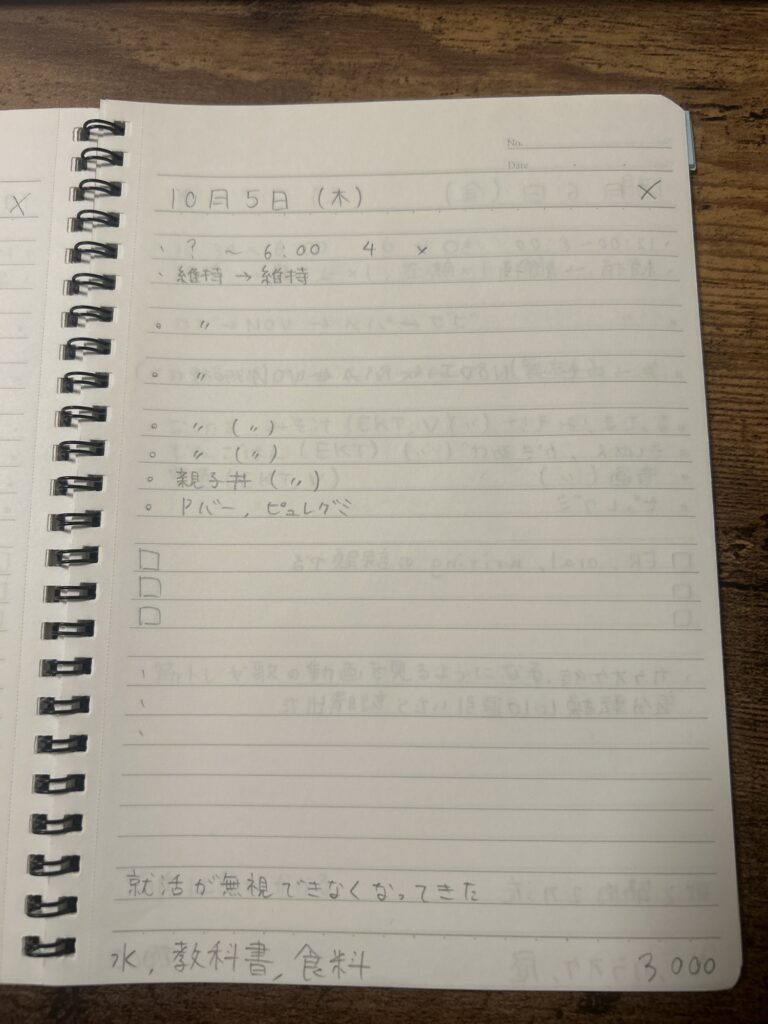 No.
Date
10月5日（木） ×
・ ? ～ 6:00 4 ×
・ 維持 → 維持
○ 〃
○ 〃
○ 〃 (〃)
○ 〃 (〃)
○ 親子丼 (〃)
○ Pバー, ピュレグミ
就活が無視できなくなってきた
水, 教科書, 食料 3,000